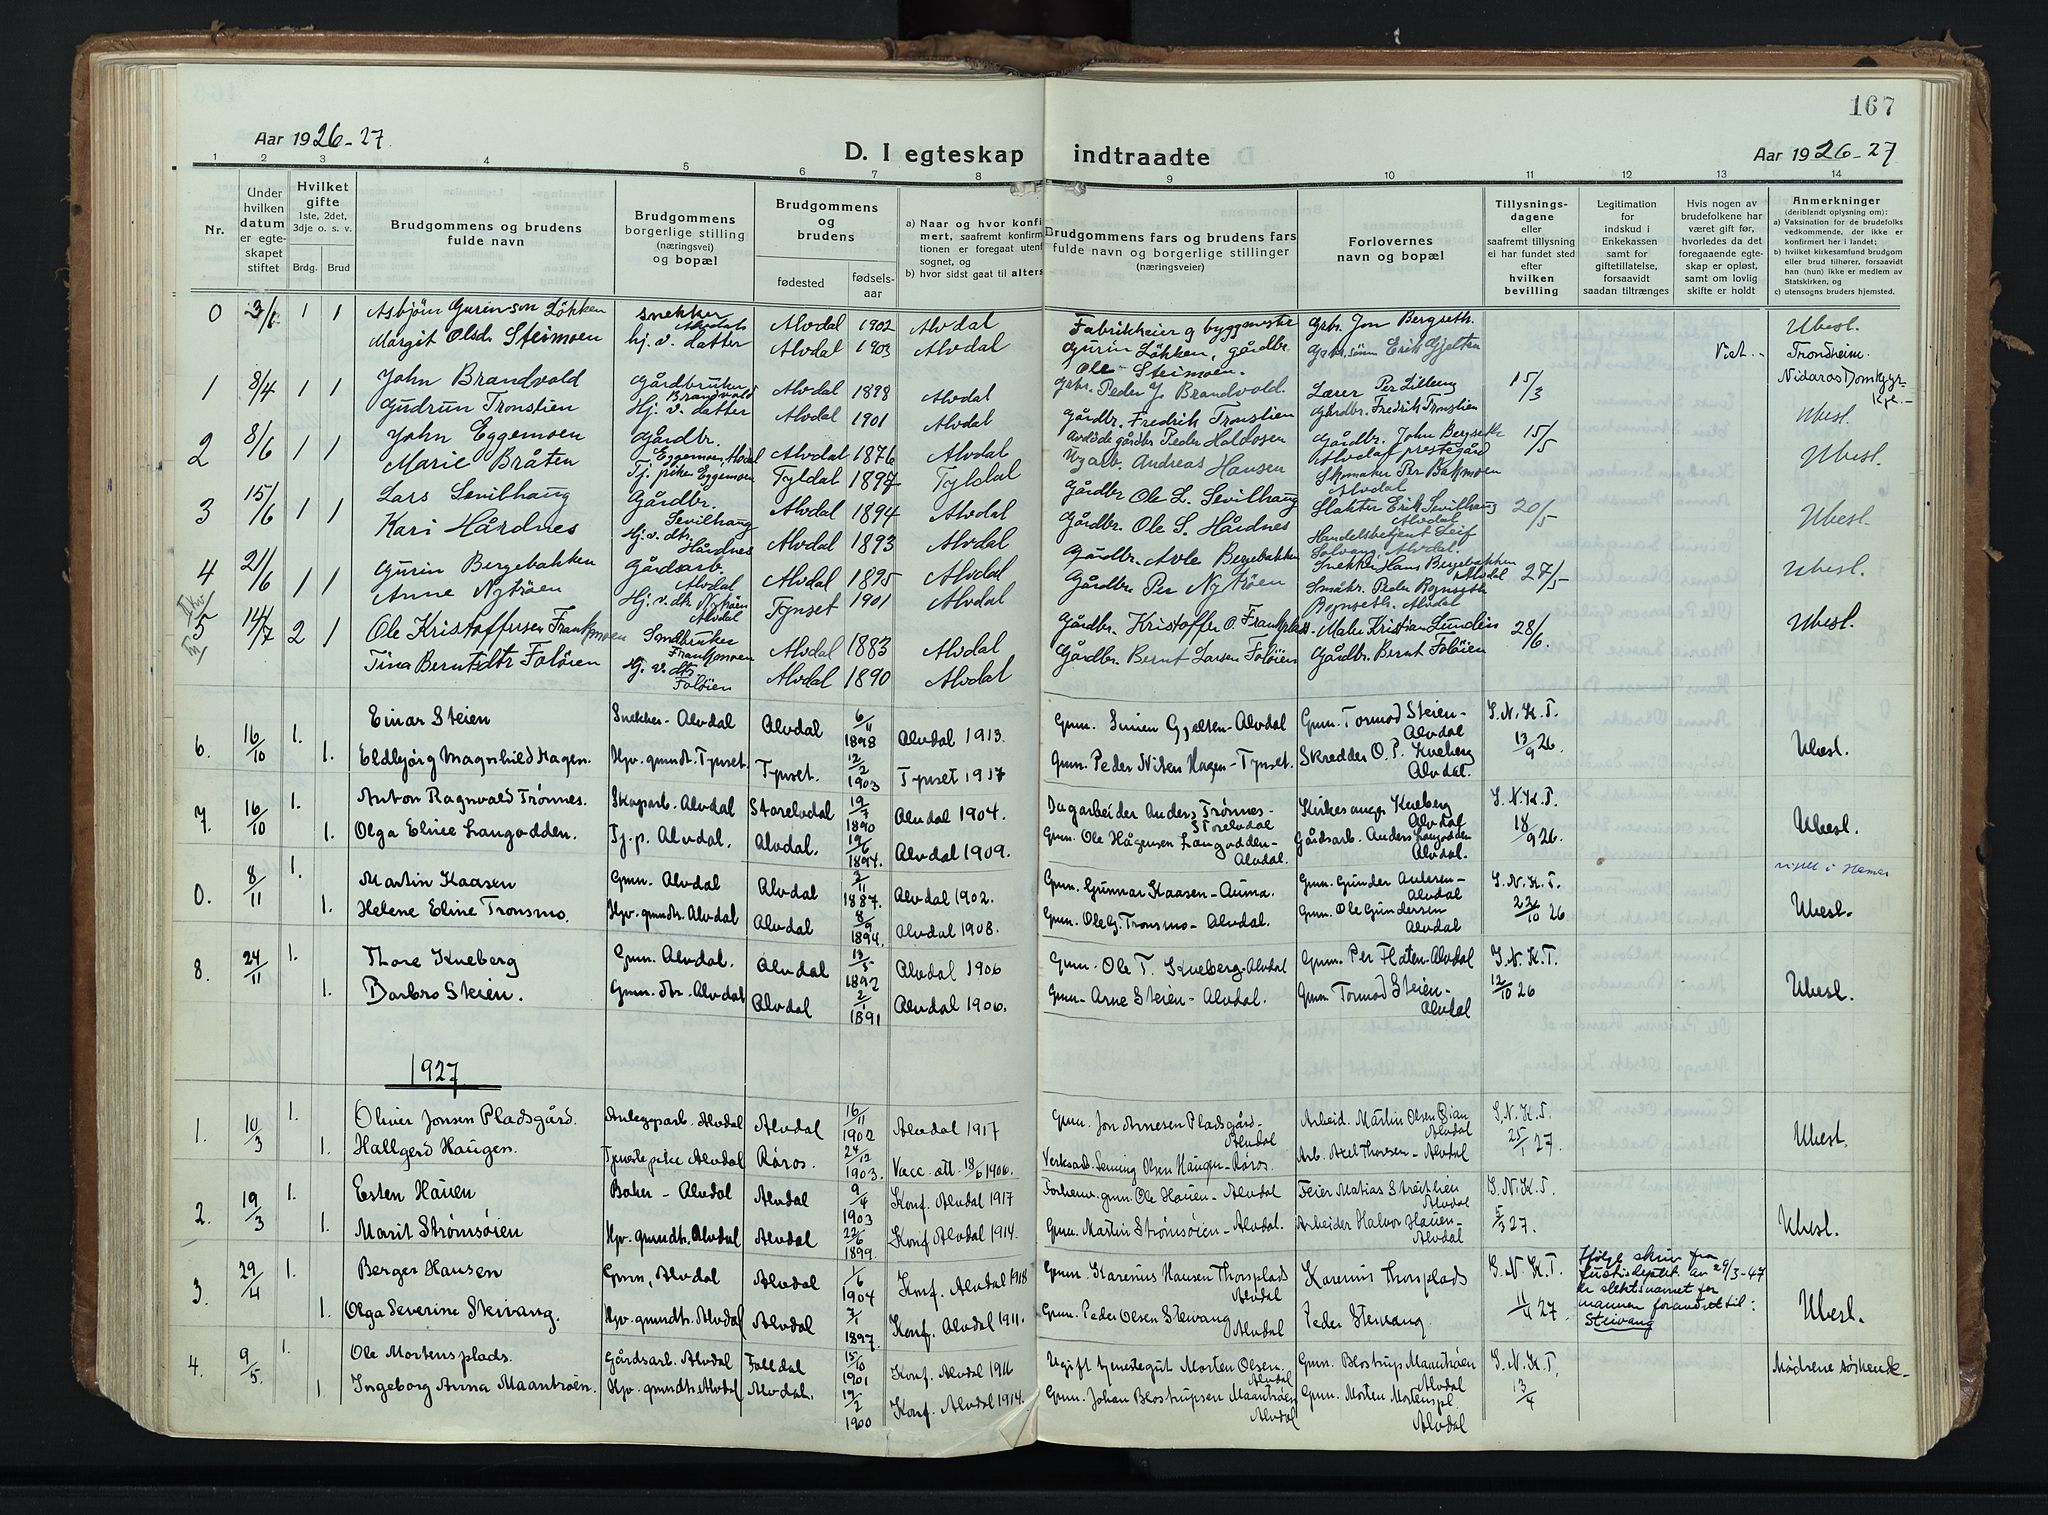 167
Aar 1926-27
D. I egteskap indtraadte
Aar 1926-27
1 2 3 4 5 6 7 8 9 10 11 12 13 14
Nr.
Under hvilken datum er egteskapet stiftet
Hvilket gifte 1ste, 2det, 3dje o. s. v.
Brdg. Brud
Brudgommens og brudens fulde navn
Brudgommens borgerlige stilling (næringsvei) og bopæl
Brudgommens og brudens
fødested
fødselsaar
a) Naar og hvor konfirmert, saafremt konfirmationen er foregaat utenf sognet, og
b) hvor sidst gaat til alters
Brudgommens fars og brudens fars fulde navn og borgerlige stillinger (næringsveier)
Forlovernes navn og bopæl
Tillysningsdagene eller saafremt tillysning ei har fundet sted efter hvilken bevilling
Legitimation for indskud i Enkekassen samt for giftetillatelse, forsaavidt saadan tiltrænges
Hvis nogen av brudefolkene har været gift før, hvorledes da det foregaaende egteskap er opløst, samt om lovlig skifte er holdt
Anmerkninger
(deriblandt oplysning om):
a) Vaksination for de brudefolks vedkommende, der ikke er konfirmert her i landet;
b) hvilket kirkesamfund brudgom eller brud tilhører, forsaavidt han (hun) ikke er medlem av Statskirken, og
c) utensogns bruders hjemsted.
0 3/1 1 1 Asbjørn Gurinson Løkken snekker Alvdal Alvdal 1902 Alvdal Fabrikkeier og byggmester Gurin Løkken, Gbr. Jon Bergseth. Ubesl.
Margit Olsdr. Steimoen hj. v. datter Alvdal 1903 Alvdal gårdbr. Ole Steimoen. Gbr. sønn Erik Gjelten Viet. - Trondheim. Nidaros Domkyrkje.-
1 8/4 1 1 John Brandvold Gårdbruker Brandvold Alvdal 1898 Alvdal Gbr. Peder J. Brandvold. Lærer Per Lilleeng 15/3
Gudrun Tronstien Hj. v. datter Alvdal 1901 Alvdal Gårdbr. Fredrik Tronstien Gårdbr. Fredrik Tronstien Ubesl.
2 8/6 1 1 John Eggemoen Gårdbr. Eggemoen, Alvdal Alvdal 1876 Alvdal Avdøde gårdbr Peder Haldosen Gårdbr. John Bergseth Alvdal prestegård 15/5
Marie Bråten Tj. pike Eggemoen Tyldal 1897 Tyldal Andreas Hansen Skomaker Per Bakmoen Alvdal Ubesl.
3 15/6 1 1 Lars Sevilhaug Gårdbr. Sevilhaug Alvdal 1894 Alvdal Gårdbr Ole L. Sevilhaug Slakter Erik Sevilhaug Alvdal 20/5
Kari Hårdnes Hj. v. dtr. Hårdnes Alvdal 1893 Alvdal Gårdbr. Ole S. Hårdnes Handelsbetjent Leif Alvdal. Ubesl.
4 21/6 1 1 Gurin Bergebakken Gårdsarb. Alvdal Alvdal 1895 Alvdal Gårdbr. Bergebakken Snekker Hans Bergebakken Alvdal 27/5
Anne Nytrøen Hj. v. dtr. Nytrøen Alvdal Tynset 1901 Alvdal Gårdbr. Per Nytrøen Småbr. Peder Alvdal Ubesl.
5 14/7 2 1 Ole Kristoffersen Frankmoen Småbruker Frankmoen Alvdal 1883 Alvdal Gårdbr. Kristoffer O. Maler Kristian Lunden 28/6. Ubesl.
Tina Berntsdtr Foløien Hj. v. dtr. Foløien Alvdal 1890 Alvdal Gårdbr. Bernt Larsen Foløien Gårdbr. Bernt Foløien
6. 16/10 1. Einar Steien Snekker - Alvdal Alvdal 6/11 1898 Alvdal 1913. Grmn. Simen Gjelten - Alvdal Grmn. Tormod Steien - Alvdal S. N. K. T. 13/9 26
1. Eldbjørg Magnhild Hagen. Hjv. grmndt. Tynset. Tynset. 12/2 1903 Tynset 1917 Grmn. Peder Nilsen Hagen - Tynset. Skredder O. P. Kveberg Alvdal. Ubesl.
7. 16/10 1. Anton Ragnvald Trønnes. Skogarb. Alvdal Storelvdal 19/7 1890 Alvdal 1904. Dagarbeider Anders Trønnes - Storelvdal Kirkesanger Kveberg Alvdal S. N. K. T. 18/9 26.
1. Olga Eline Langodden. Tj. p. Alvdal. Alvdal. 19/6 1894. Alvdal 1909. Grmn. Ole Hågensen Langodden - Alvdal. Gårdsarb. Anders Langodden Alvdal. Ubesl.
0. 8/11 1. Martin Kaasen Grmn. Alvdal Alvdal 2/11 1887. Alvdal 1902. Grmn. Gunnar Kaasen - Auma. Grmn. Gunder Andersen - Alvdal S. N. K. T. 23/10 26 vigslt i Hamar
1. Helene Eline Tronsmo. Hjv. grmndtr. Alvdal Alvdal 8/9 1894. Alvdal 1908. Grmn. Ole G. Tronsmo - Alvdal. Grmn. Ole Gundersen Alvdal Ubesl.
8. 24/11 1. Thore Kveberg Grmn. Alvdal. Alvdal 13/5 1892 Alvdal 1906 Grmn. Ole T. Kveberg - Alvdal Grmn. Per Flaten - Alvdal S. N. K. T. 12/10 26
1. Barbro Steien. Grmn. dtr. Alvdal Alvdal 2/1 1891 Alvdal 1906. Grmn. Arne Steien - Alvdal. Grmn Tormod Steien - Alvdal Ubesl.
1927
1. 10/3 1. Oliver Jonsen Pladsgård. Anleggsarb. Alvdal Alvdal 16/11 1902 Alvdal 1917 Grmn. Jon Arnesen Pladsgård - Alvdal Arbeid. Martin Olsen Alvdal S. N. K. T. 25/1 27
1. Hallgerd Haugen. Tjenestepike Alvdal Røros. 24/12 1903. Vacc. att. 18/6 1906. Verksarb. Henning Olsen Haugen - Røros. Arb. Axel Thoresen - Alvdal Ubesl.
2. 19/3 1. Esten Hauen Baker - Alvdal Alvdal 9/4 1903 Konf. Alvdal 1917 Forhenv. grmn. Ole Hauen - Alvdal Feier Matias Streitlien Alvdal S. N. K. T. 5/3 27.
1. Marit Strømsøien Hjv. grmndtr. Alvdal Alvdal 22/6 1899. Konf Alvdal 1914. Grmn. Martin Strømsøien - Alvdal. Arbeider Halvor Hauen - Alvdal Ubesl.
3. 29/4 1. Berger Hansen Grmn, Alvdal Alvdal 1/6 1904 Konf. Alvdal 1918 Grmn. Karenius Hansen Thorsplads Alvdal Karenius Thorsplads S. N. K. T. 11/4 27 Ifølge skriv fra Justisdeptet av 29/3-47 er slektsnavnet for mannen forandret til: Steivang
1. Olga Severine Steivang. Hjv. grmndtr. Alvdal Alvdal 7/1 1897. Konf. Alvdal 1911. Grmn. Peder Olsen Steivang Alvdal Peder Steivang. Ubesl.
4. 9/5. 1. Ole Mortensplads. Gårdsarb. Alvdal Folldal 15/10 1901 Konf. Alvdal 1916 Ugift tjenestegut Morten Olsen. Alvdal Grmn. Blostrup Maantrøen Alvdal S. N. K. T. 13/4 Mødrene søskende.
1. Ingeborg Anna Maantrøen. Hjv. grmndtr. Alvdal Alvdal. 19/2 1900 Konf. Alvdal 1914. Grmn. Johan Blostrupsen Maantrøen Alvdal Grmn. Morten Mortenspl. Alvdal